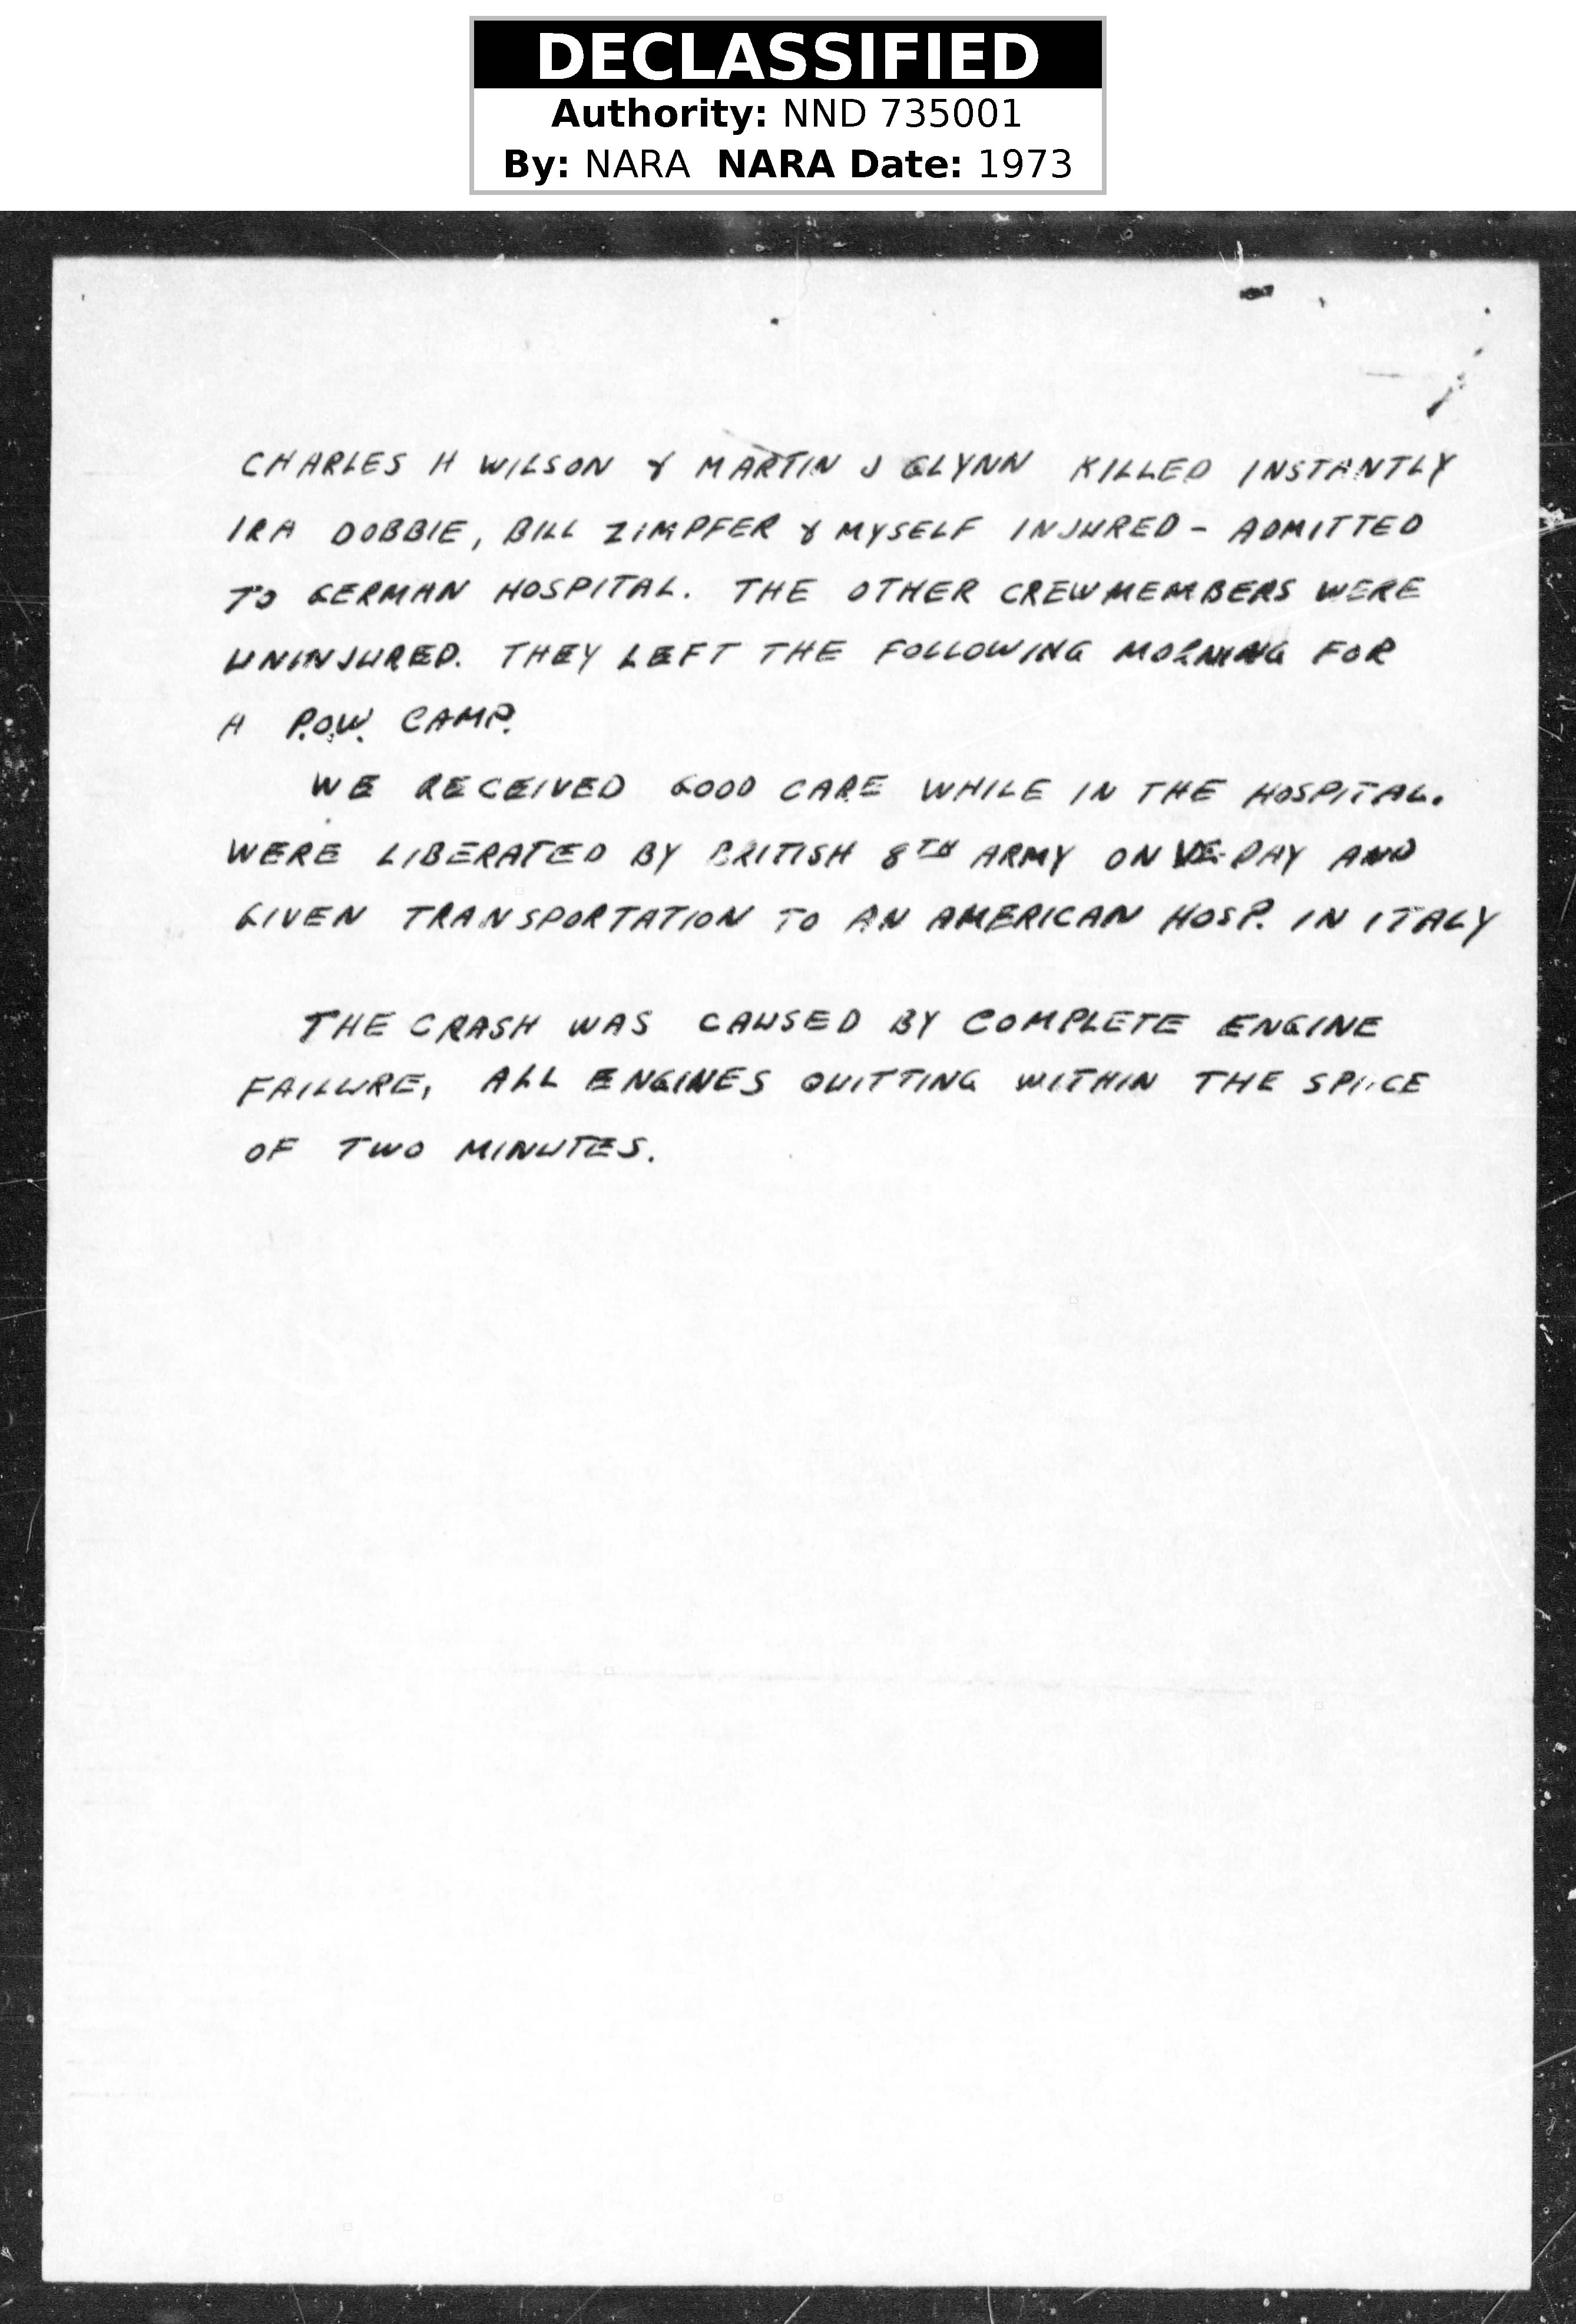 DECLASSIFIED
Authority: NND 735001
By: NARA NARA Date: 1973
CHARLES H WILSON & MARTIN J GLYNN KILLED INSTANTLY
IRA DOBBIE, BILL ZIMPFER & MYSELF INJURED - ADMITTED
TO GERMAN HOSPITAL. THE OTHER CREWMEMBERS WERE
UNINJURED. THEY LEFT THE FOLLOWING MORNING FOR
A P.O.W. CAMP.
WE RECEIVED GOOD CARE WHILE IN THE HOSPITAL.
WERE LIBERATED BY BRITISH 8TH ARMY ON VE-DAY AND
GIVEN TRANSPORTATION TO AN AMERICAN HOSP. IN ITALY
THE CRASH WAS CAUSED BY COMPLETE ENGINE
FAILURE, ALL ENGINES QUITTING WITHIN THE SPACE
OF TWO MINUTES.